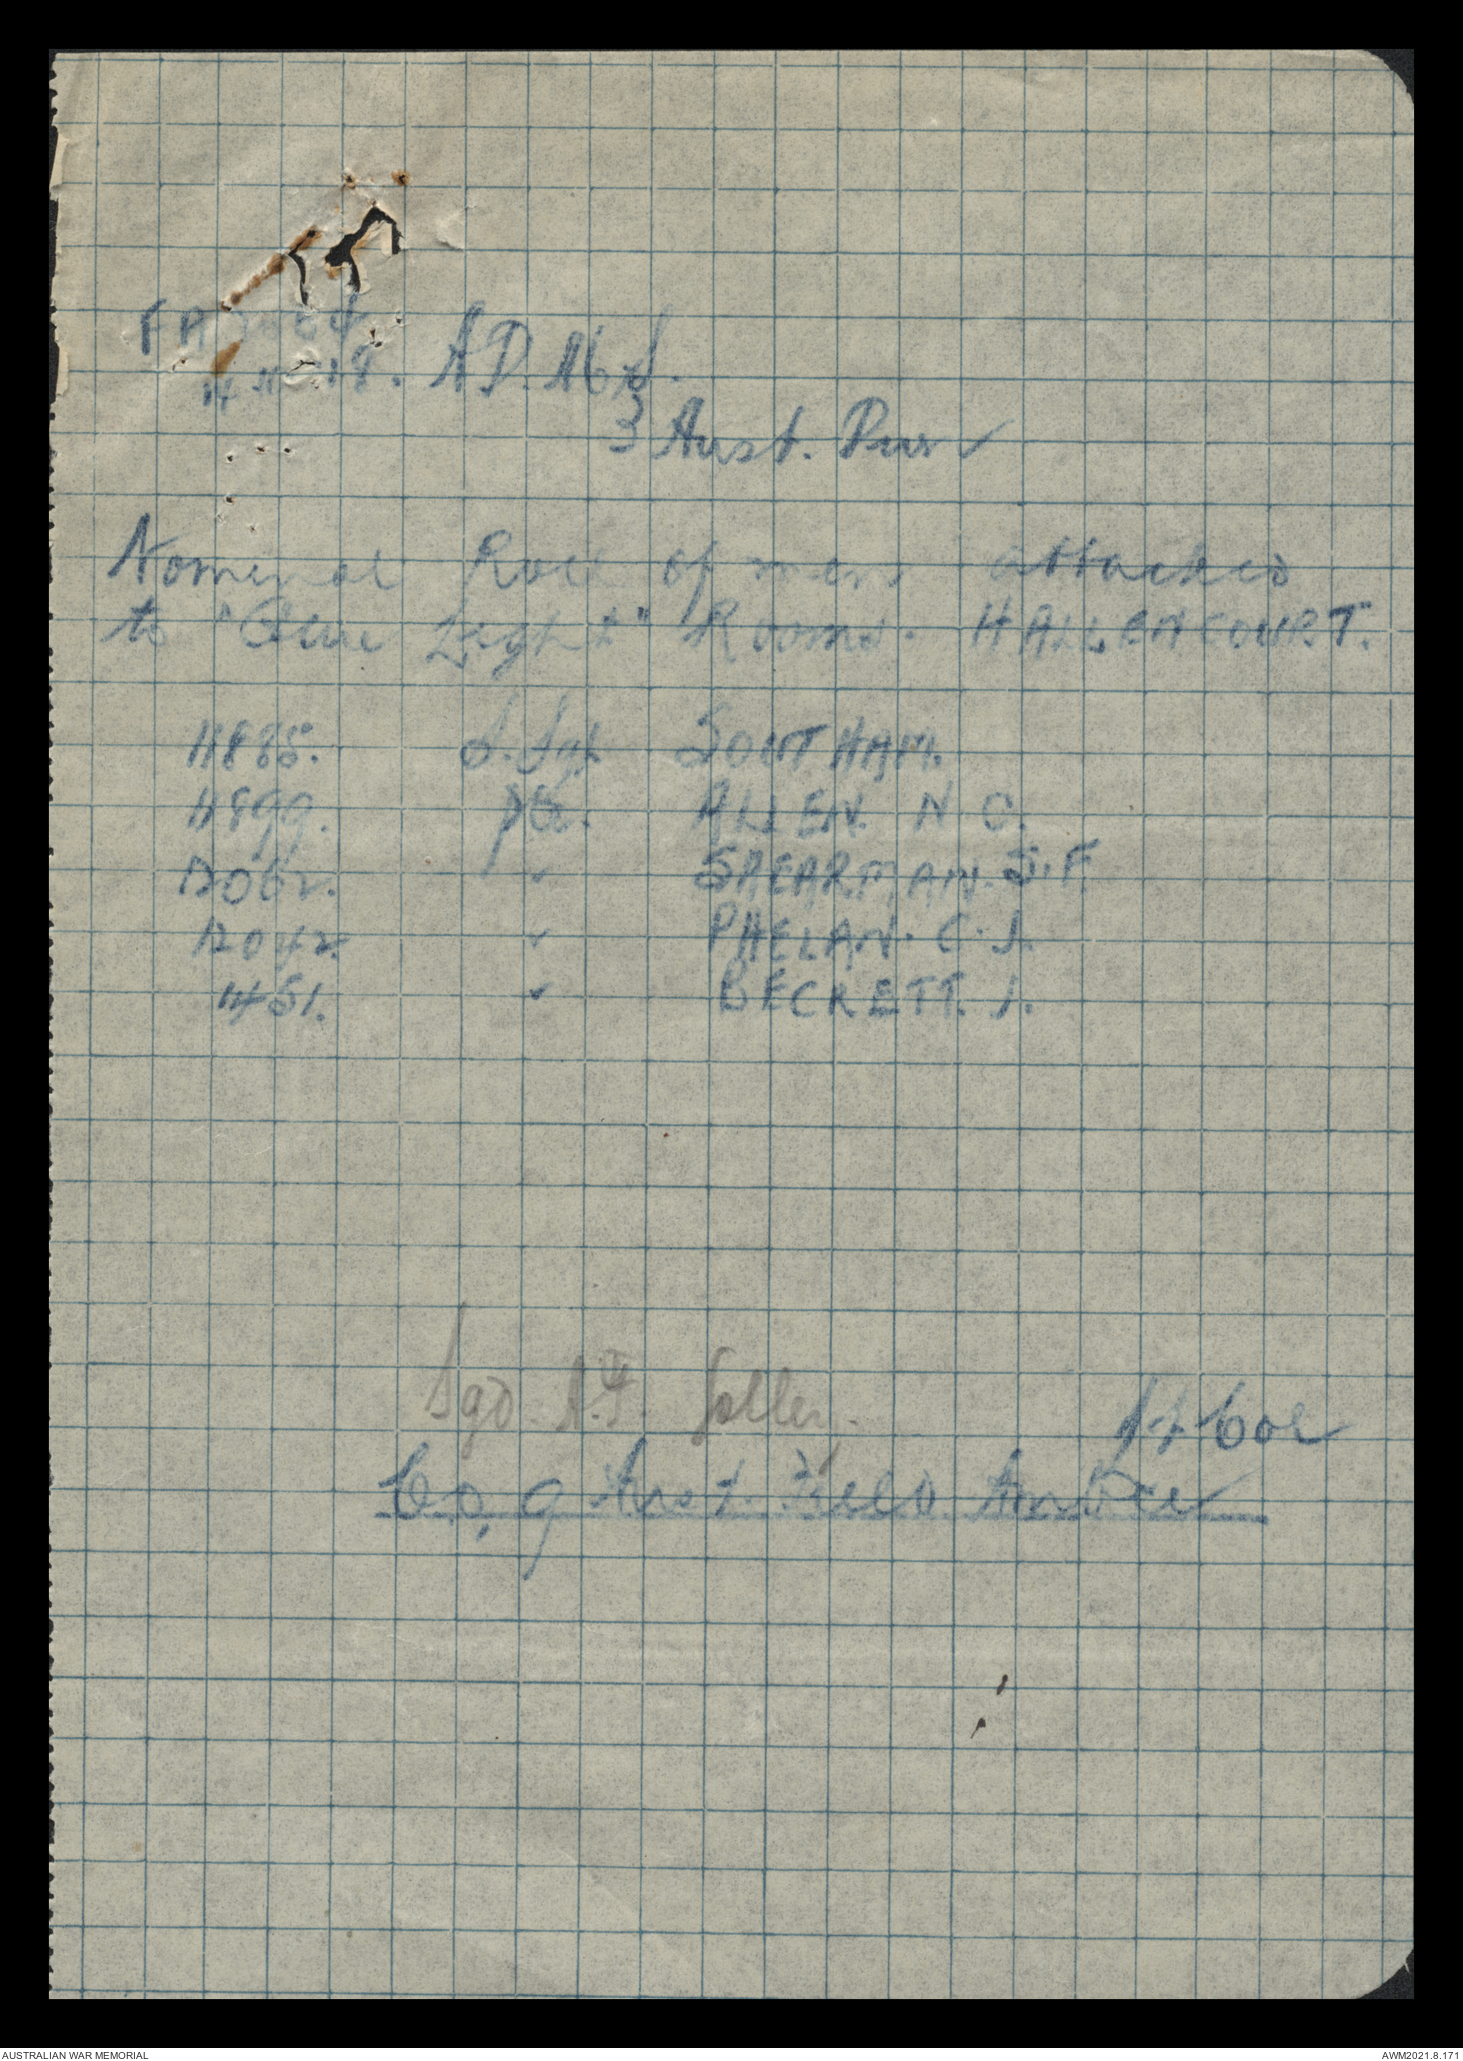 A.D.M.S.
3 Aust. Div
Nominal Roll of men attached
to "Blue Light" Rooms. HALLENCOURT.
11885. S.Sgt SOUTHAM.
11899. Pte. ALLEN. N. C.
12062. " SHEARMAN. S. F.
12042. " PHELAN. C. J.
1451. " BECKETT. J.
Sgd. A.F. Jolley. Lt Col
Co, 9 Aust. Field Ambce
AUSTRALIAN WAR MEMORIAL AWM2021.8.171